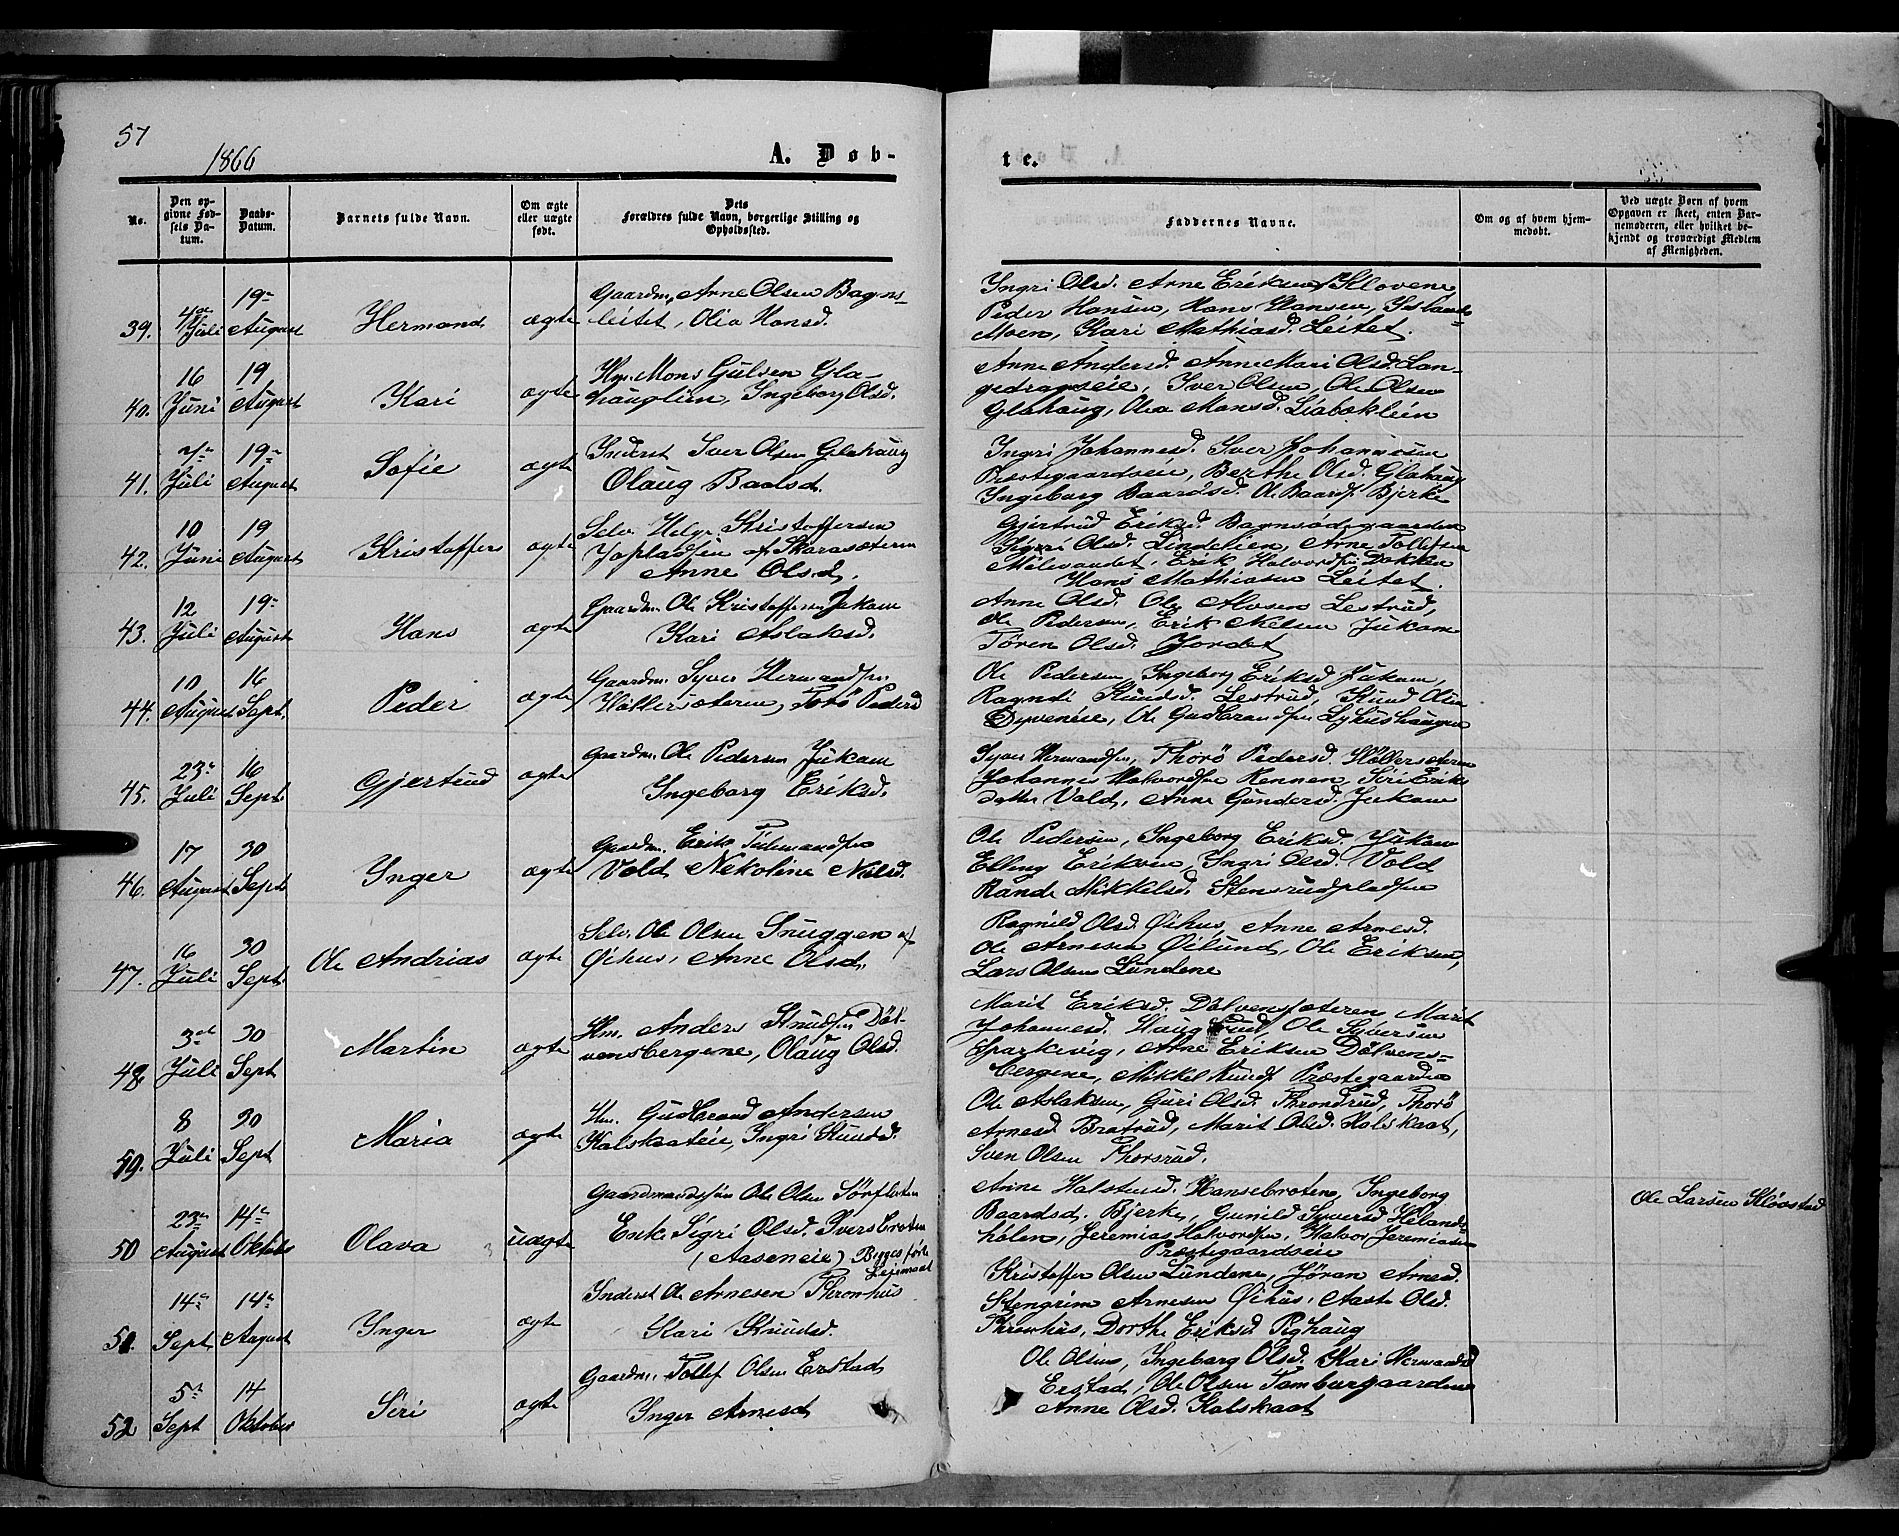 57
1866
A. Døb-
te.
No.
Den op-
givne Fød-
sels Da-
tum.
Daabs-
Datum.
Barnets fulde Navn.
Om ægte
eller uægte
født.
Dets
Forældres fulde Navn, borgerlige Stilling og
Opholdssted.
Faddernes Navne.
Om og af hvem hjem-
medøbt.
Ved uægte Børn af hvem
Opgaven er skeet, enten Bar-
nemoderen, eller hvilket be-
kjendt og troværdigt Medlem
af Menigheden.
39. 4de Juli
19 August
Hermand
ægte
Gaardm. Arne Olsen Bagns-
leitet, Olia Hansd.
Ingri Olsd. Arne Eriksen Klovene
Peder Hansen, Hans Hansen, Islands-
Moen, Kari Mathiasd. Leitet.
40. 16 Juni
19 August
Kari
ægte
Hm. Mons Gulsen Gla-
hauglien, Ingeborg Olsd.
Anne Andersd. Anne Mari Olsd. Lan-
gedrageeie, Iver Olsen, Ole Olsen
Glahaug, Olea Monsd. Liabæklein
41. Juli
19 August
Sofie
ægte
Inderst Iver Olsen Glahaug
Olaug Baadsd.
Ingri Johannesd. Iver Johannesen
Præstegaardseie, Berthe Olsd. Glahaug
Ingeborg Baardsd. Ole Baards. Bjerke
42. 10 Juni
19 August
Kristoffer
ægte
Selv. Helge Kristoffersen
af Skarasæteren
Anne Olsd.
Gjertrud Eriksd. Bagnsødegaarden
Sigri Olsd. Lindelien, Arne Tollefsen
Erik Halvordsen Bakken
Hans Mathiasen Leitet.
43. 12 Juli
19 August
Hans
ægte
Gaardm. Ole Kristoffersen Jukam
Kari Aslaksd.
Anne Olsd. Ole Alvsen Lestrud,
Ole Pedersen, Erik Nelsen Jukam
Tören Olsd. Jordet
44. 10 August
16 Sept.
Peder
ægte
Gaardm. Syver Hermandsen
Höllersæteren, Torö Pedersd
Ole Pedersen, Ingeborg Eriksd. Jukam,
Ragndi Knudsd. Lestrud, Knud Olsen
Dyveneie, Ole Gudbrandsen Lykushaugen
45. 23 Juli
16 Sept.
Gjertrud
ægte
Gaardm. Ole Pedersen Jukam
Ingeborg Eriksd.
Syver Hermandsen, Thorö Pedersd. Höllersæteren
Johannes Halvordsen Rennen, Siri Eriks
datter Vold, Anne Gundersd. Jukam
46. 17 August
30 Sept
Inger
ægte
Gaardm. Erik Tidemandsen
Vold Nekoline Nilsd.
Ole Pedersen, Ingeborg Eriksd. Jukam
Elling Eriksen, Ingri Olsd. Vold
Rande Mikkelsd. Stensrudpladsen
47. 16 Juli
30 Sept
Ole Andrias
ægte
Selv. Ole Olsen Snuggen af
Öihus, Anne Olsd.
Ragnild Olsd. Öihus, Anne Arnesd.
Ole Arnesen Öilund, Ole Eriksen,
Lars Olsen Lundene
48. 3 Juli
30 Sept
Martin
ægte
Hm. Anders Knudsen Döl-
vensbergene, Olaug Olsd.
Marit Eriksd. Dölvensæteren, Marit
Johannesd. Haugsrud, Ole Syversen
Sparkevig, Arne Eriksen Dölvens-
bergene, Mikkel Knuds. Præstegaarden
49. 8 Juli
30 Sept
Maria
ægte
Hm. Gudbrand Andersen
Kalskaateie, Ingri Knudsd.
Ole Aslaksen, Guri Olsd. Throndrud, Thorö
Arnesd Bratrud, Marit Olsd. Kalskaat,
Sven Olsen Thorsrud.
50 23 August
14 Oktober
Olava
3
uægte
Gaardmandssön Ole Olsen Sörflaten
Enke Sigri Olsd. Iversbraaten
(Aaseneie) Begges förste
Leiermaal
Anne Halstensd. Hansebraaten, Ingeborg
Baardsd. Bjerke, Gunild Syversd Helands-
hølen, Jeremias Halvordsen, Halvor Jeremiasen
Præstegaardseie
Ole Larsen Klövstad
51. 14 Sept
14 August
Inger
ægte
Inderst Ole Arnesen Thronhus
Kari Knudsd.
Kristoffer Olsen Lundene, Jöran Arnesd.
Stengrim Arnesen Öihus, Aaste Olsd.
Thronhus, Dorthe Eriksd. Pighaug
52 5 Sept
14 Oktober
Siri
ægte
Gaardm. Tollef Olsen Erstad
Inger Arnesd
Ole Olsen, Ingeborg Olsd. Kari Hermandsd
Erstad, Ole Olsen Tomburgaarden
Anne Olsd. Kalskaat